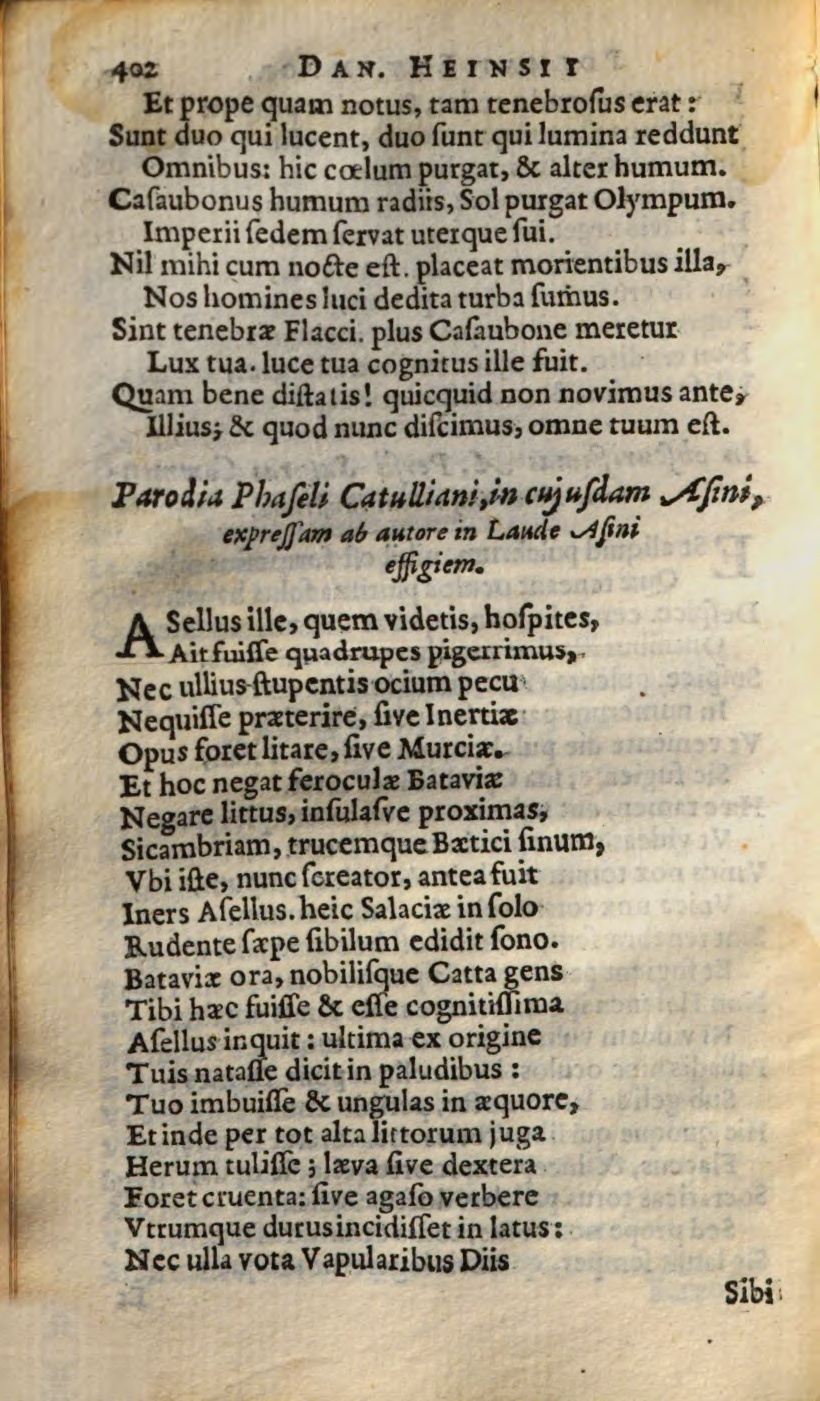 402 DAN. HEINSII
Et prope quam notus, tam tenebroſus erat :
Sunt duo qui lucent, duo ſunt qui lumina reddunt
Omnibus: hic cœlum purgat, & alter humum.
Caſaubonus humum radiis, Sol purgat Olympum.
Imperii ſedem ſervat uterque ſui.
Nil mihi cum nocte eſt. placeat morientibus illa,
Nos homines luci dedita turba ſumus.
Sint tenebræ Flacci. plus Caſaubone meretur
Lux tua. luce tua cognitus ille fuit.
Quam bene diſtatis! quicquid non novimus ante,
Illius; & quod nunc diſcimus, omne tuum eſt.
Parodia Phaſeli Catulliani, in cujuſdam Aſini,
expreſſam ab autore in Laude Aſini
effigiem.
ASellus ille, quem videtis, hoſpites,
Ait fuiſſe quadrupes pigerrimus,
Nec ullius ſtupentis ocium pecu
Nequiſſe præterire, ſive Inertiæ
Opus foret litare, ſive Murciæ.
Et hoc negat feroculæ Bataviæ
Negare littus, inſulaſve proximas,
Sicambriam, trucemque Bætici ſinum,
Vbi iſte, nunc ſcreator, antea fuit
Iners Aſellus. heic Salaciæ in ſolo
Rudente ſæpe ſibilum edidit ſono.
Bataviæ ora, nobiliſque Catta gens
Tibi hæc fuiſſe & eſſe cognitiſſima
Aſellus inquit : ultima ex origine
Tuis nataſſe dicit in paludibus :
Tuo imbuiſſe & ungulas in æquore,
Et inde per tot alta littorum juga
Herum tuliſſe ; læva ſive dextera
Foret cruenta: ſive agaſo verbere
Vtrumque durus incidiſſet in latus :
Nec ulla vota Vapularibus Diis
Sibi